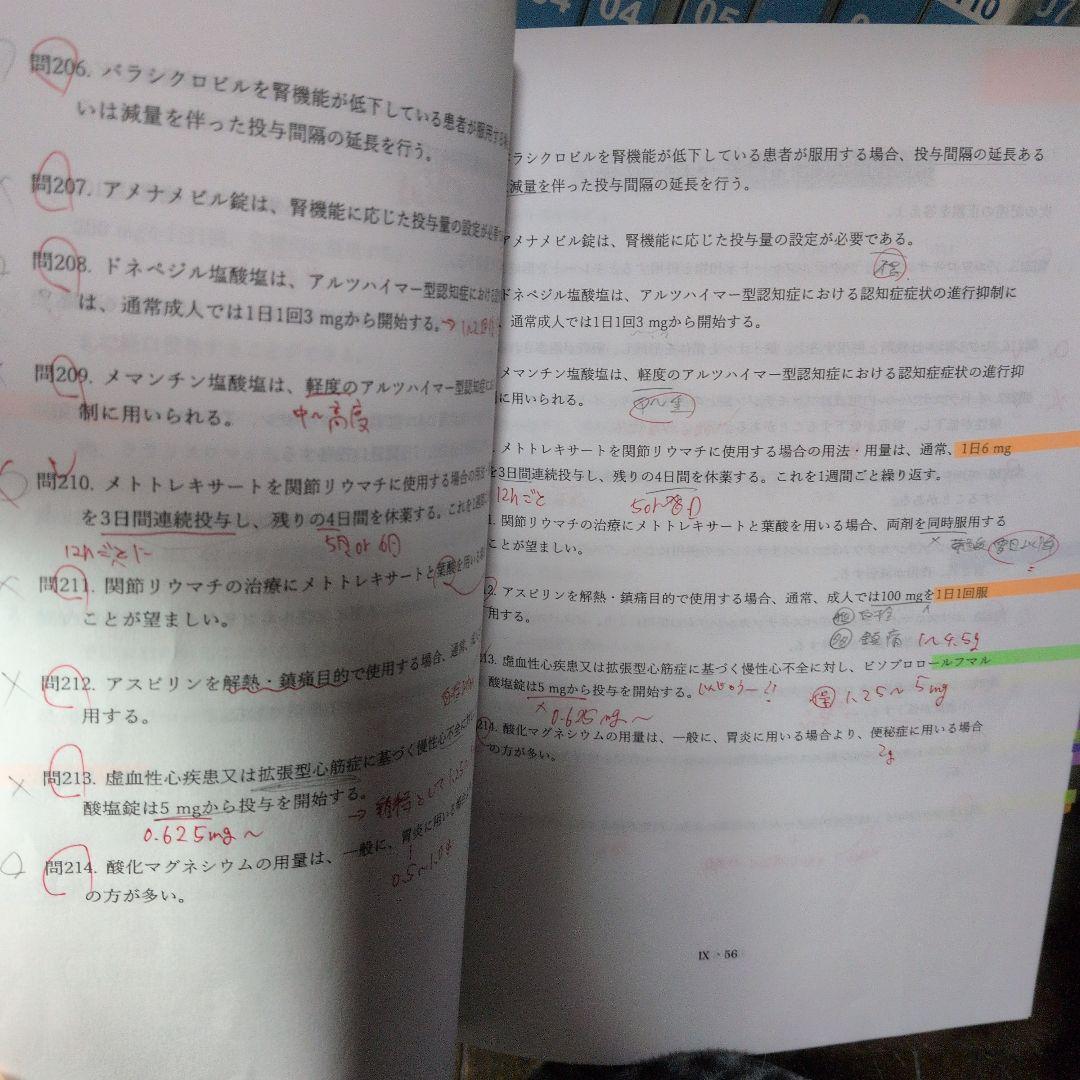 04
04
05
07
問206. バラシクロビルを腎機能が低下している患者が服用する
いは減量を伴った投与間隔の延長を行う。
問207. アメナメビル錠は、腎機能に応じた投与量の設定が必要
問208. ドネペジル塩酸塩は、アルツハイマー型認知症における
は、通常成人では1日1回3 mgから開始する。
問209. メマンチン塩酸塩は、軽度のアルツハイマー型認知症に
制に用いられる。
中~高度
問210. メトトレキサートを関節リウマチに使用する場合の用
を3日間連続投与し、残りの4日間を休薬する。これを1週
12hごとに
5日 or 6日
問211. 関節リウマチの治療にメトトレキサートと葉酸を用い
ことが望ましい。
問212. アスピリンを解熱・鎮痛目的で使用する場合、通常、
用する。
問213. 虚血性心疾患又は拡張型心筋症に基づく慢性心不全に対
酸塩錠は5 mgから投与を開始する。
0.625mg~
問214. 酸化マグネシウムの用量は、一般に、胃炎に用いる場合
0.5~1.0g
の方が多い。
ラシクロビルを腎機能が低下している患者が服用する場合、投与間隔の延長ある
減量を伴った投与間隔の延長を行う。
アメナメビル錠は、腎機能に応じた投与量の設定が必要である。
ドネペジル塩酸塩は、アルツハイマー型認知症における認知症症状の進行抑制に
、通常成人では1日1回3 mgから開始する。
メマンチン塩酸塩は、軽度のアルツハイマー型認知症における認知症症状の進行抑
に用いられる。
中~重
メトトレキサートを関節リウマチに使用する場合の用法・用量は、通常、1日6 mg
を3日間連続投与し、残りの4日間を休薬する。これを1週間ごと繰り返す。
12hごと
1. 関節リウマチの治療にメトトレキサートと葉酸を用いる場合、両剤を同時服用する
ことが望ましい。
2. アスピリンを解熱・鎮痛目的で使用する場合、通常、成人では100 mgを1日1回服
用する。
鎮痛 1~4.5g
13. 虚血性心疾患又は拡張型心筋症に基づく慢性心不全に対し、ビソプロロールフマル
酸塩錠は5 mgから投与を開始する。
1.25~5mg
0.625mg~
214. 酸化マグネシウムの用量は、一般に、胃炎に用いる場合より、便秘症に用いる場合
2g
の方が多い。
IX - 56